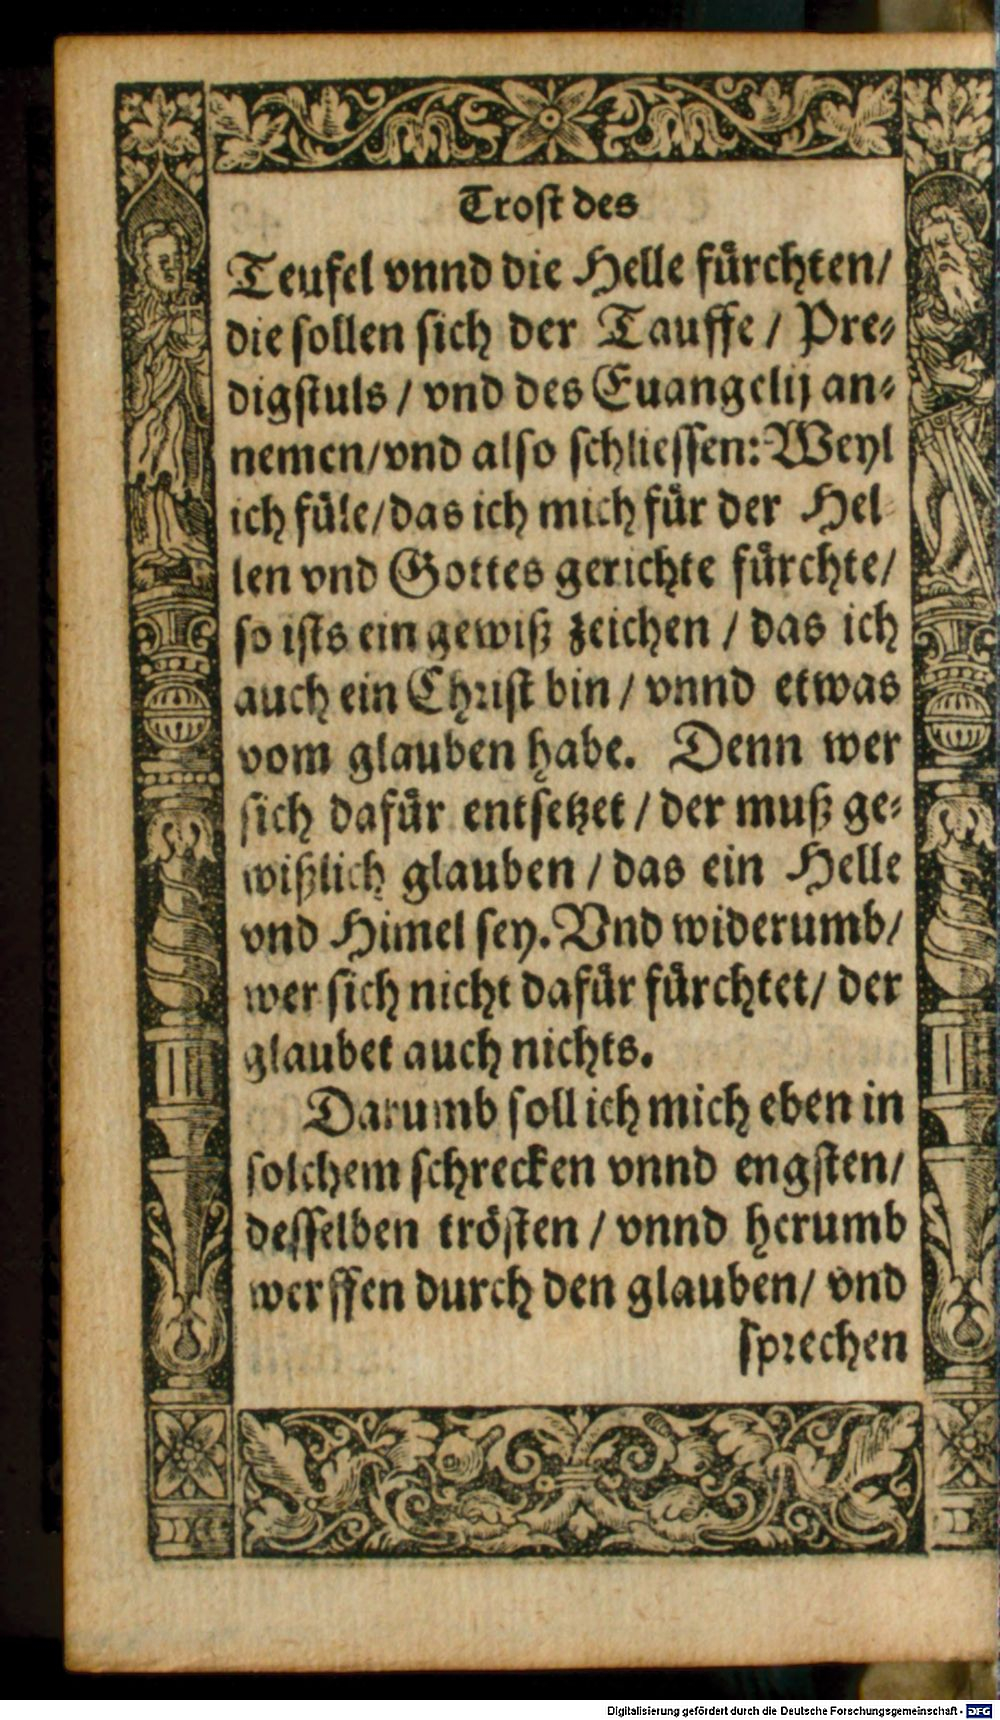 Trost des
Teufel vnnd die Helle fuͤrchten/
die sollen sich der Tauffe / Pre⸗
digstuls / vnd des Euangelij an⸗
nemen/vnd also schliessen: Weyl
ich fuͤle/das ich mich fuͤr der Hel⸗
len vnd Gottes gerichte fuͤrchte/
so ists ein gewiß zeichen / das ich
auch ein Christ bin / vnnd etwas
vom glauben habe. Denn wer
sich dafuͤr entsetzet / der muß ge⸗
wißlich glauben / das ein Helle
vnd Himel sey. Vnd widerumb/
wer sich nicht dafuͤr fuͤrchtet/ der
glaubet auch nichts.
Darumb soll ich mich eben in
solchem schrecken vnnd engsten/
desselben troͤsten / vnnd herumb
werffen durch den glauben/ vnd
sprechen
Digitalisierung gefördert durch die Deutsche Forschungsgemeinschaft - DFG